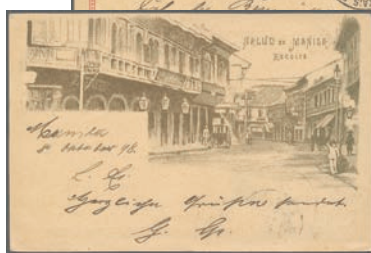 SALUD DE MANILA
ESCOLTA
Manila
8 October 98.
L. G.
Herzliche Grüße sendet
G. Gr.